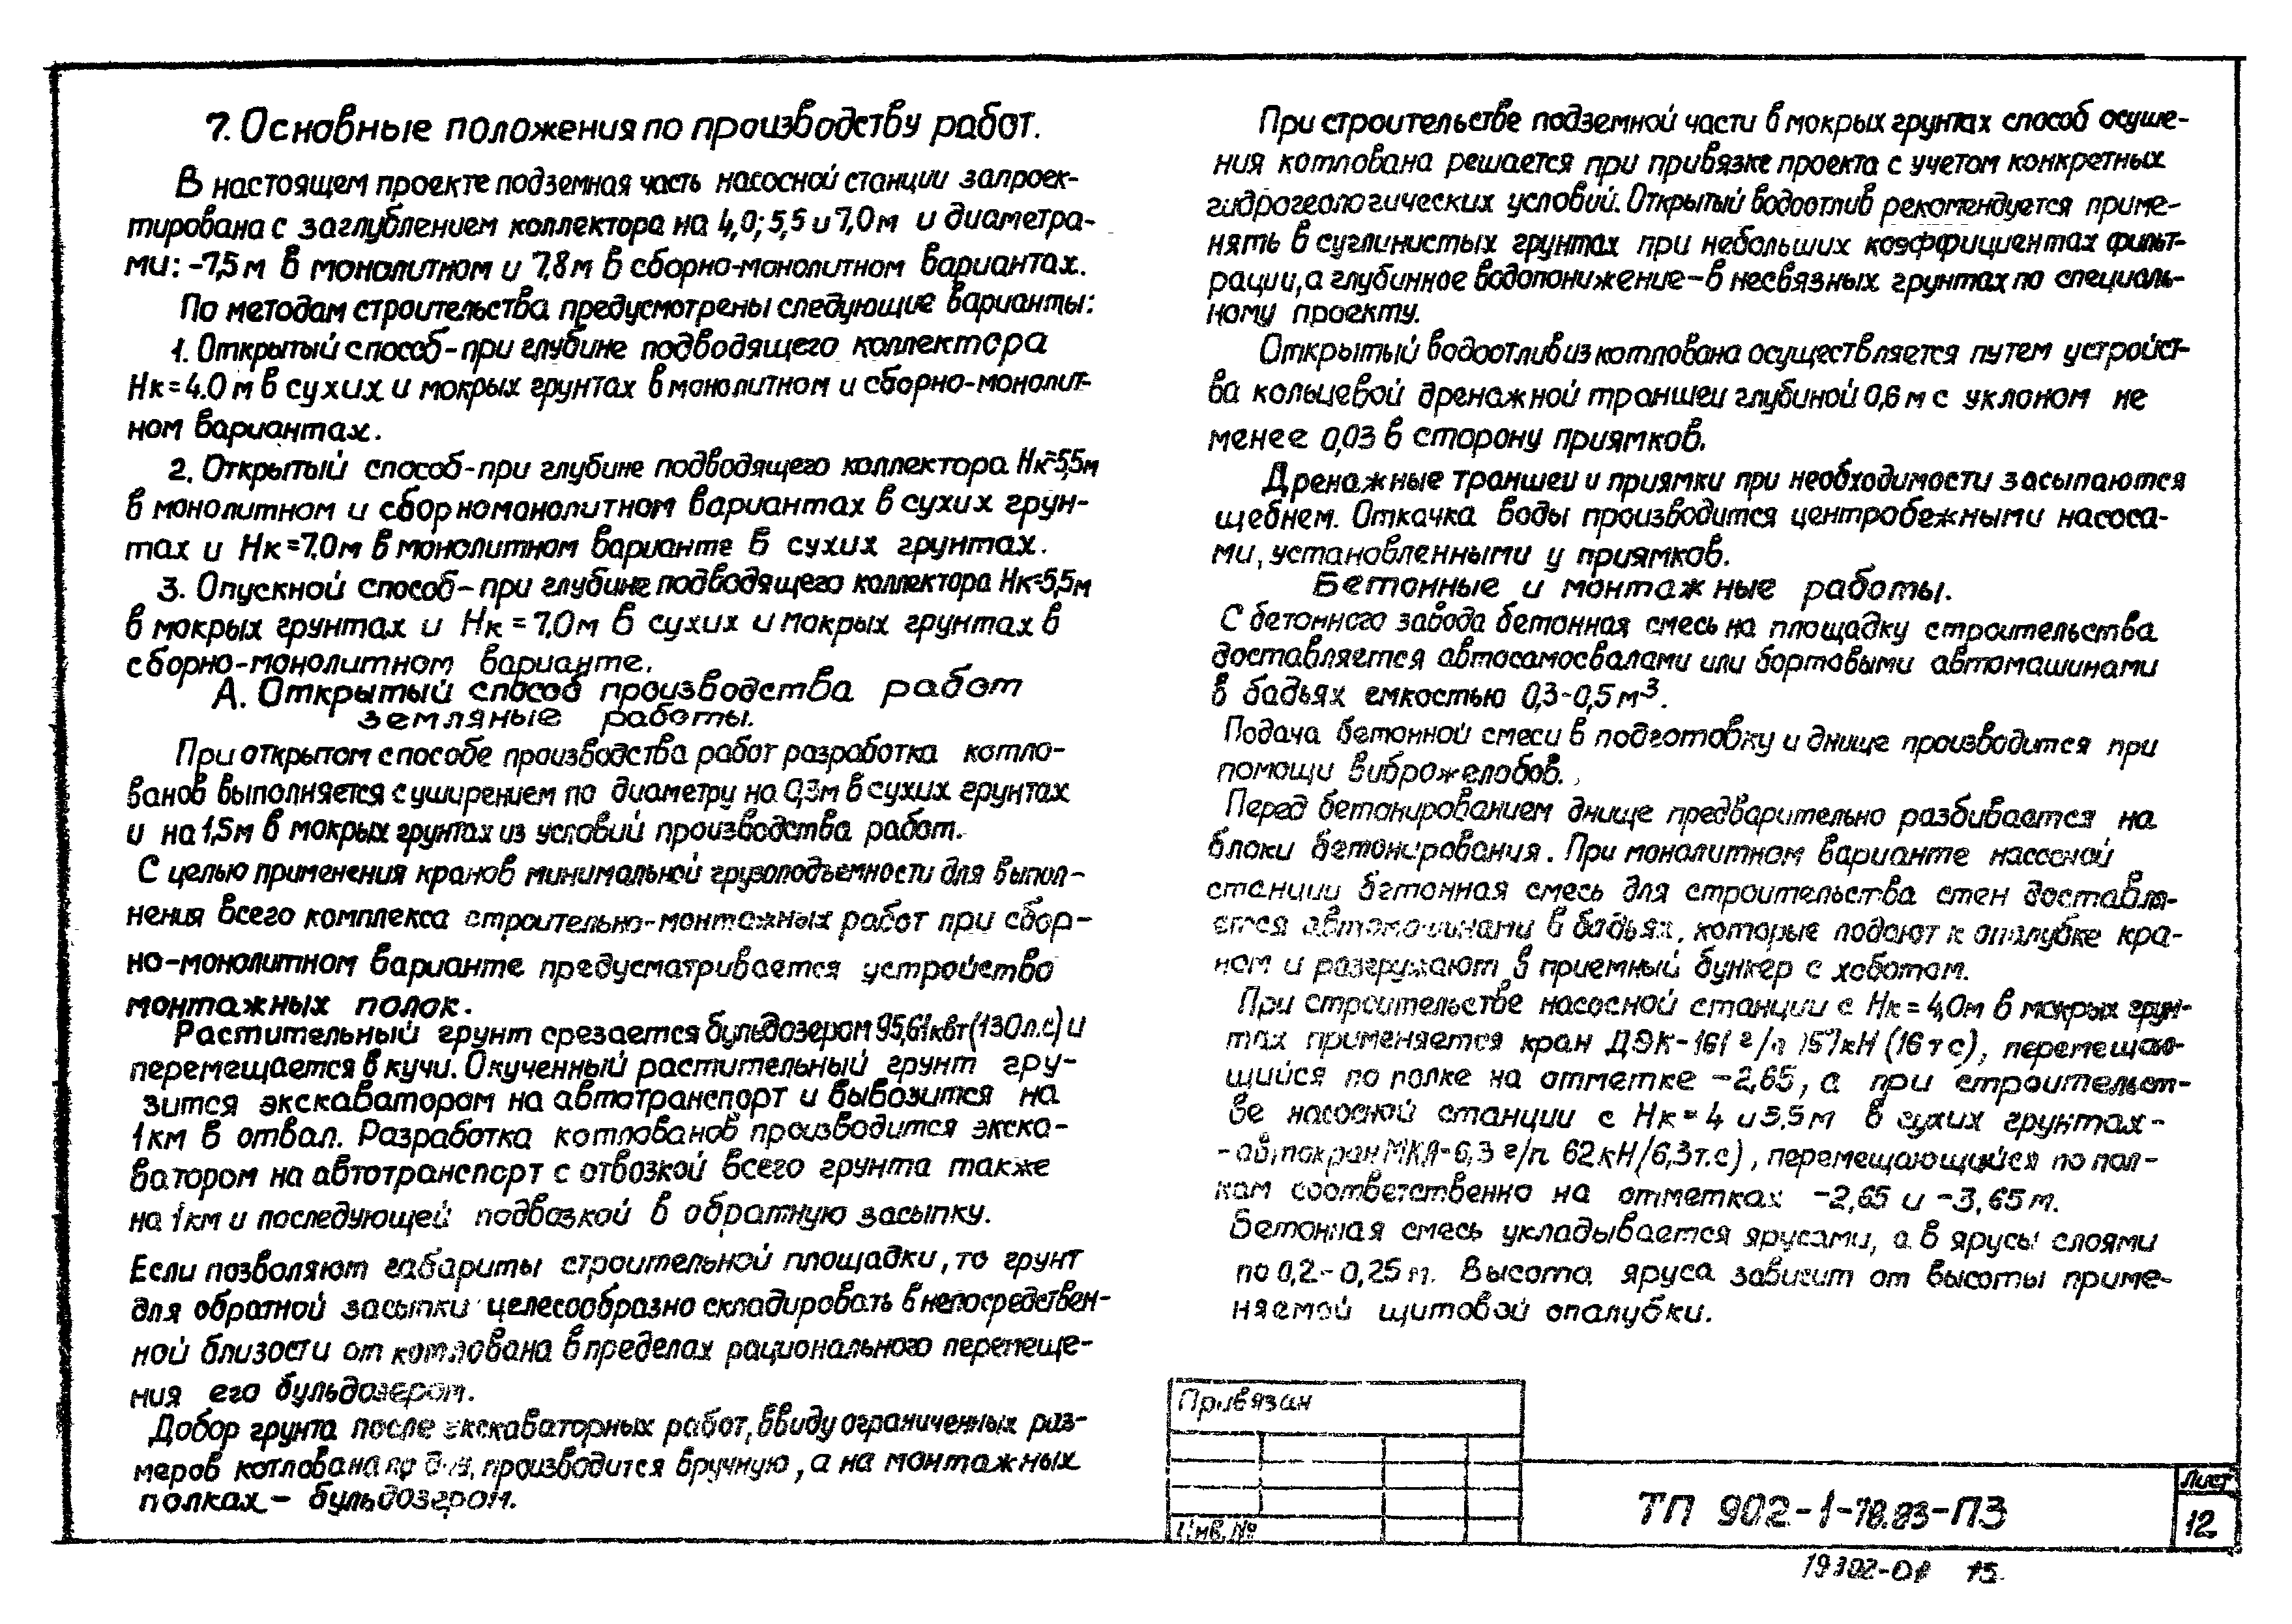 7. Основные положения по производству работ.
В настоящем проекте подземная часть насосной станции запроек-
тирована с заглублением коллектора на 4,0; 5,5 и 7,0 м и диаметра-
ми: -7,5 м в монолитном и 7,8 м в сборно-монолитном вариантах.
По методам строительства предусмотрены следующие варианты:
1. Открытый способ - при глубине подводящего коллектора
Нк = 4.0 м в сухих и мокрых грунтах в монолитном и сборно-монолит-
ном вариантах.
2. Открытый способ - при глубине подводящего коллектора Нк=5,5м
в монолитном и сборномонолитном вариантах в сухих грун-
тах и Нк = 7.0м в монолитном варианте в сухих грунтах.
3. Опускной способ - при глубине подводящего коллектора Нк=5,5м
в мокрых грунтах и Нк = 7,0м в сухих и мокрых грунтах в
сборно-монолитном варианте.
А. Открытый способ производства работ
земляные работы.
При открытом способе производства работ разработка котло-
ванов выполняется с уширением по диаметру на 0,3м в сухих грунтах
и на 1,5м в мокрых грунтах из условий производства работ.
С целью применения кранов минимальной грузоподъемности для выпол-
нения всего комплекса строительно-монтажных работ при сбор-
но-монолитном варианте предусматривается устройство
монтажных полок.
Растительный грунт срезается бульдозером 95,61квт(130л.с) и
перемещается в кучи. Окученный растительный грунт гру-
зится экскаватором на автотранспорт и вывозится на
1км в отвал. Разработка котлованов производится экска-
ватором на автотранспорт с отвозкой всего грунта также
на 1км и последующей подвозкой в обратную засыпку.
Если позволяют габариты строительной площадки, то грунт
для обратной засыпки целесообразно складировать в непосредствен-
ной близости от котлована в пределах рационального перемеще-
ния его бульдозером.
Добор грунта после экскаваторных работ, ввиду ограниченных раз-
меров котлована по производится вручную, а на монтажных
полках - бульдозером.
При строительстве подземной части в мокрых грунтах способ осуше-
ния котлована решается при привязке проекта с учетом конкретных
гидрогеологических условий. Открытый водоотлив рекомендуется приме-
нять в суглинистых грунтах при небольших коэффициентах фильт-
рации, а глубинное водопонижение - в несвязных грунтах по специаль-
ному проекту.
Открытый водоотлив из котлована осуществляется путем устройст-
ва кольцевой дренажной траншеи глубиной 0,6 м с уклоном не
менее 0,03 в сторону приямков.
Дренажные траншеи и приямки при необходимости засыпаются
щебнем. Откачка воды производится центробежными насоса-
ми, установленными у приямков.
Бетонные и монтажные работы.
С бетонного завода бетонная смесь на площадку строительства
доставляется автосамосвалами или бортовыми автомашинами
в бадьях емкостью 0,3-0,5 м³.
Подача бетонной смеси в подготовку и днище производится при
помощи виброжелобов.
Перед бетонированием днище предварительно разбивается на
блоки бетонирования. При монолитном варианте насосной
станции бетонная смесь для строительства стен доставля-
ется автомашинами в бадьях, которые подают к опалубке кра-
ном и разгружают в приемный бункер с хоботом.
При строительстве насосной станции с Нк = 4,0м в мокрых грун-
тах применяется кран ДЭК-161 г/п 157кН (16тс), перемещаю-
щийся по полке на отметке -2,65, а при строительст-
ве насосной станции с Нк = 4 и 5,5м в сухих грунтах -
- автокран МКА-6,3 г/п 62кН/6,3т.с), перемещающийся по пол-
кам соответственно на отметках -2,65 и -3,65 м.
Бетонная смесь укладывается ярусами, а в ярусы слоями
по 0,2 - 0,25 м. Высота яруса зависит от высоты приме-
няемой щитовой опалубки.
Привязан
Инв. №
ТП 902-1-78.83-ПЗ
Лист
12
19302-01 15